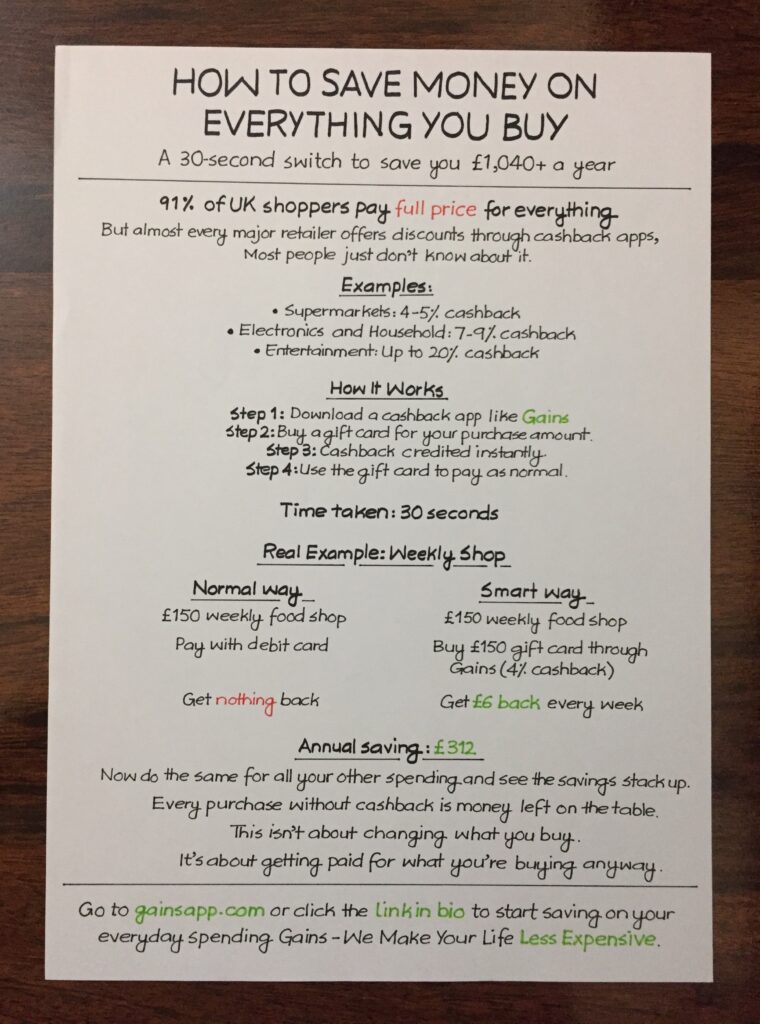 HOW TO SAVE MONEY ON
EVERYTHING YOU BUY
A 30-second switch to save you £1,040+ a year
91% of UK shoppers pay full price for everything
But almost every major retailer offers discounts through cashback apps,
Most people just don't know about it.
Examples:
• Supermarkets: 4-5% cashback
• Electronics and Household: 7-9% cashback
• Entertainment: Up to 20% cashback
How It Works
Step 1: Download a cashback app like Gains
Step 2: Buy a gift card for your purchase amount.
Step 3: Cashback credited instantly.
Step 4: Use the gift card to pay as normal.
Time taken: 30 seconds
Real Example: Weekly Shop
Normal way
£150 weekly food shop
Pay with debit card
Get nothing back
Smart way
£150 weekly food shop
Buy £150 gift card through
Gains (4% cashback)
Get £6 back every week
Annual saving: £312
Now do the same for all your other spending and see the savings stack up.
Every purchase without cashback is money left on the table.
This isn't about changing what you buy.
It's about getting paid for what you're buying anyway.
Go to gainsapp.com or click the link in bio to start saving on your
everyday spending Gains - We Make Your Life Less Expensive.